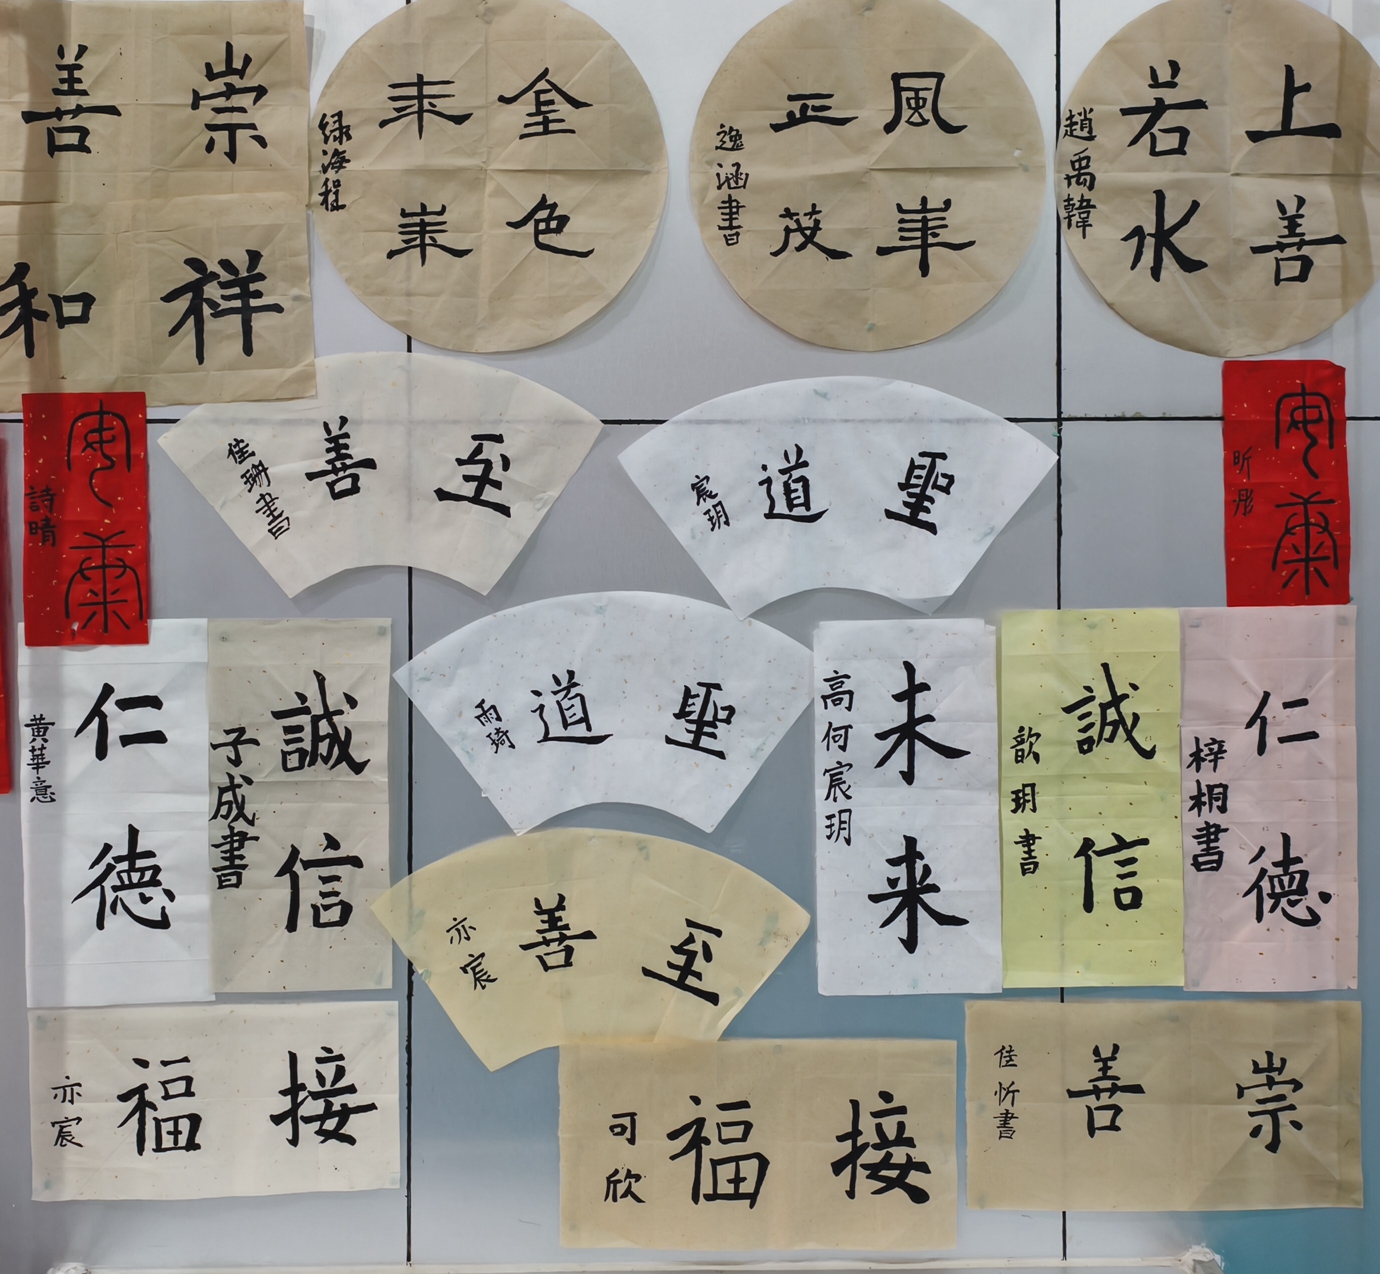 崇祥
善和
金色
年華
绿海程
風華
正茂
逸涵書
上善
若水
趙禹韓
安康
詩晴
至善
佳珊書
聖道
宸玥
安康
昕彤
仁德
黄華意
誠信
子成書
聖道
雨琦
未来
高何宸玥
誠信
歆玥書
仁德
梓桐書
至善
亦宸
接福
亦宸
接福
可欣
崇善
佳忻書